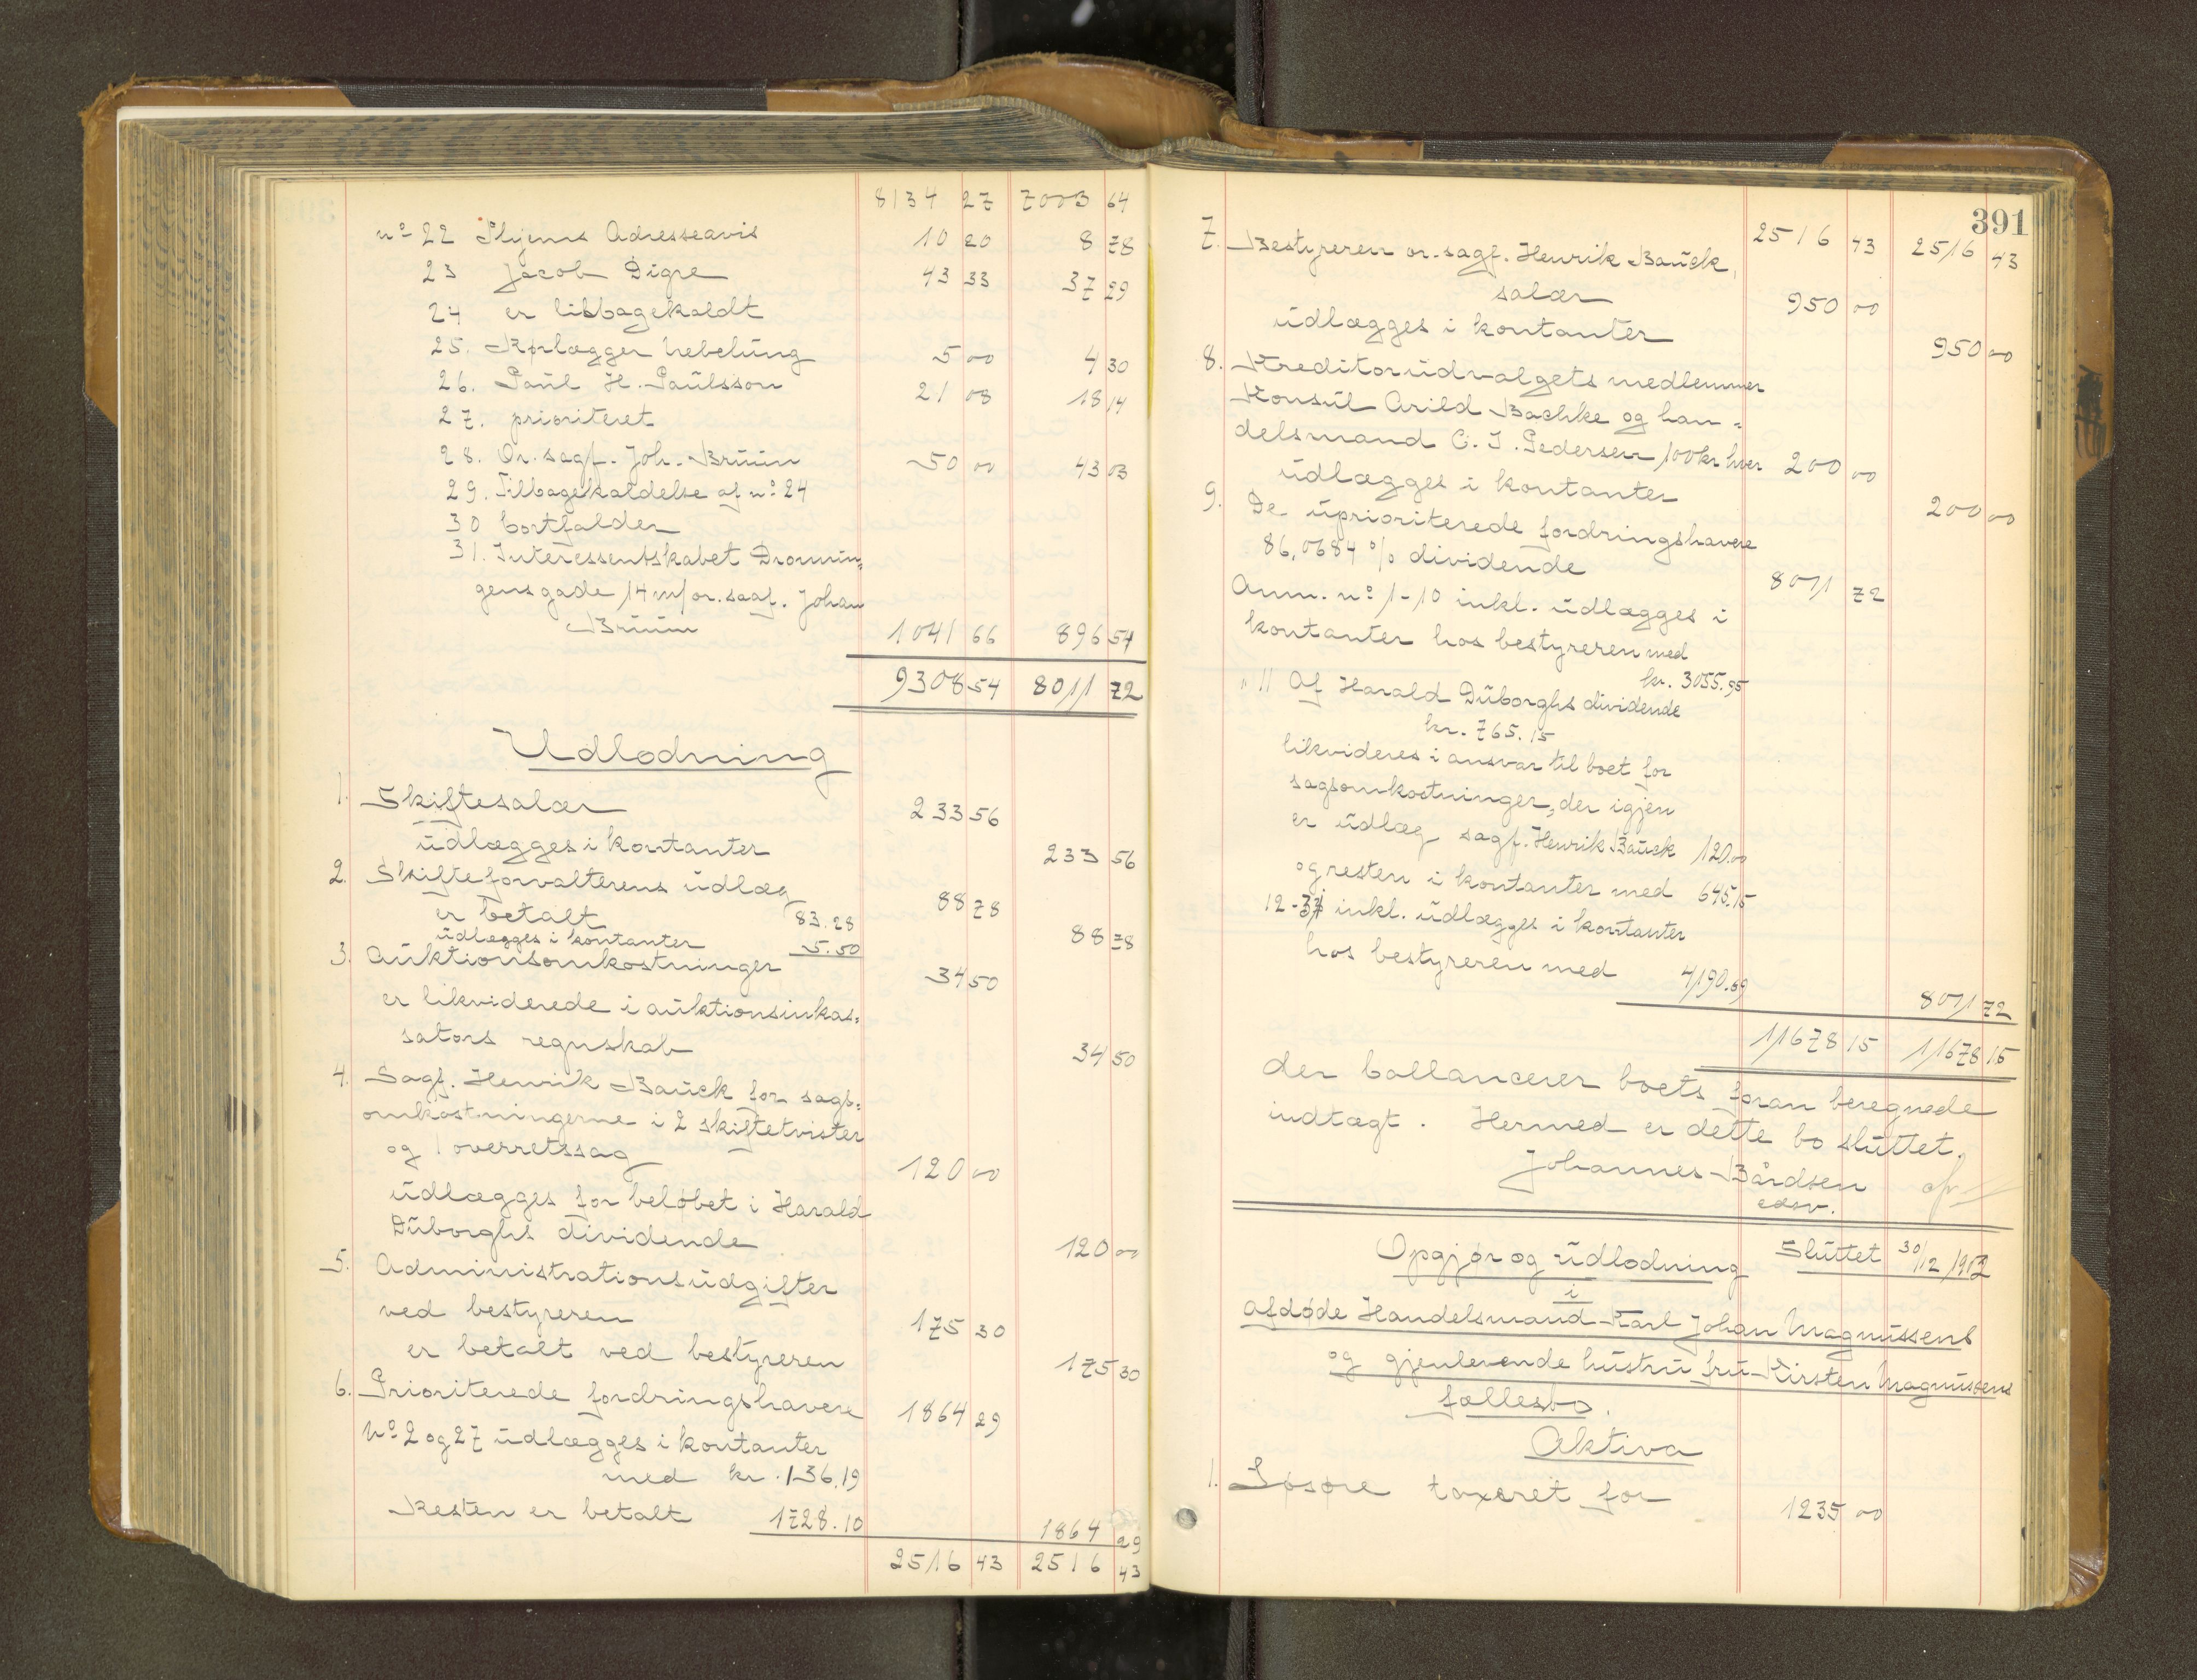 8134 27 7003 64
nº 22 Thjems Adresseavis 10 20 8 78
23 Jacob Digre 43 33 37 29
24 er tilbagekaldt
25. Nebelung 5 00 4 30
26. Paul H. Paulsson 21 08 18 14
27. prioriteret
28. Or. sagf. Joh. Bruun 50 00 43 03
29. Tilbagekaldelse af nº 24
30 bortfalder
31. Interessentskabet Dronnin=
gens gade 14 m/ or. sagf. Johan
Bruun 1041 66 896 54
9308 54 8011 72
Udlodning
1. Skiftesalær 233 56
udlægges i kontanter 233 56
2. Skifteforvalterens udlæg 88 78
er betalt 83.28
udlægges i kontanter 5.50 88 78
3. Auktionsomkostninger 34 50
er likviderede i auktionsinkas=
sators regnskab 34 50
4. Sagf. Henrik Bauck for sags=
omkostningerne i 2 skiftetvister
og 1 overretssag 120 00
udlægges for beløbet i Harald
Duborghs dividende 120 00
5. Administrationsudgifter
ved bestyreren 175 30
er betalt ved bestyreren 175 30
6. Prioriterede fordringshavere 1864 29
Nº 2 og 27 udlægges i kontanter
med kr. 136.19
Resten er betalt 1728.10 1864 29
2516 43 2516 43
391
2516 43 2516 43
7. Bestyreren or. sagf. Henrik Bauck,
salær 950 00
udlægges i kontanter 950 00
8. Kreditorudvalgets medlemmer
Konsul Arild Bachke og han=
delsmand C. J. Pedersen 100 kr hver 200 00
udlægges i kontanter 200 00
9. De uprioriterede fordringshavere
86,0684 % dividende 8011 72
Anm. nº 1-10 inkl. udlægges i
kontanter hos bestyreren med
kr. 3055.95
" 11 Af Harald Duborghs dividende
kr. 765.15
likvideres i ansvar til boet for
sagsomkostninger, der igjen
er udlæg sagf. Henrik Bauck 120.00
og resten i kontanter med 645.15
12-31 inkl. udlægges i kontanter
hos bestyreren med 4190.59 8011 72
11678 15 11678 15
der ballancerer boets foran beregnede
indtægt. Hermed er dette bo sluttet.
Johannes Bårdsen
edsv.
Opgjør og udlodning Sluttet 30/12 1913
i
afdøde Handelsmand Karl Johan Magnussens
og gjenlevende hustru fru Kirsten Magnussens
fællesbo.
Aktiva
1. Løsøre taxeret for 1235 00